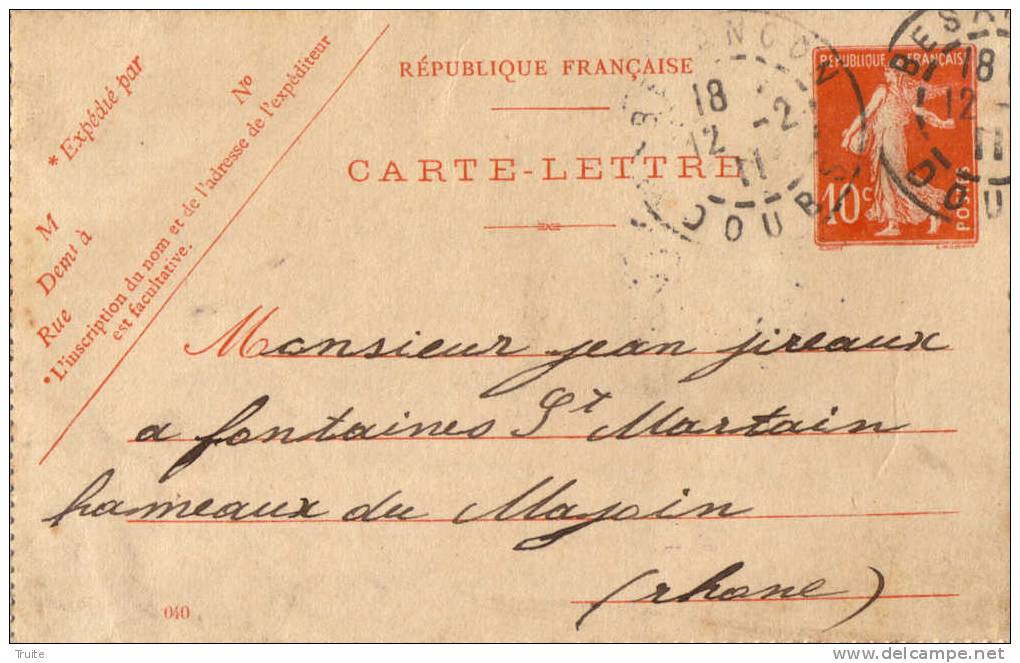 RÉPUBLIQUE FRANÇAISE
CARTE-LETTRE
* Expédié par
M
Demt à
Rue
No
* L'inscription du nom et de l'adresse de l'expéditeur
est facultative.
BESANCON
18
12 -2
11
DOUBS
RÉPUBLIQUE FRANÇAISE
10c
POSTES
BES
18
12 -
11
DOU
Monsieur jean jireaux
a fontaines St Martain
hameaux du Majoin
(rhone)
040
Trute
www.delcampe.net